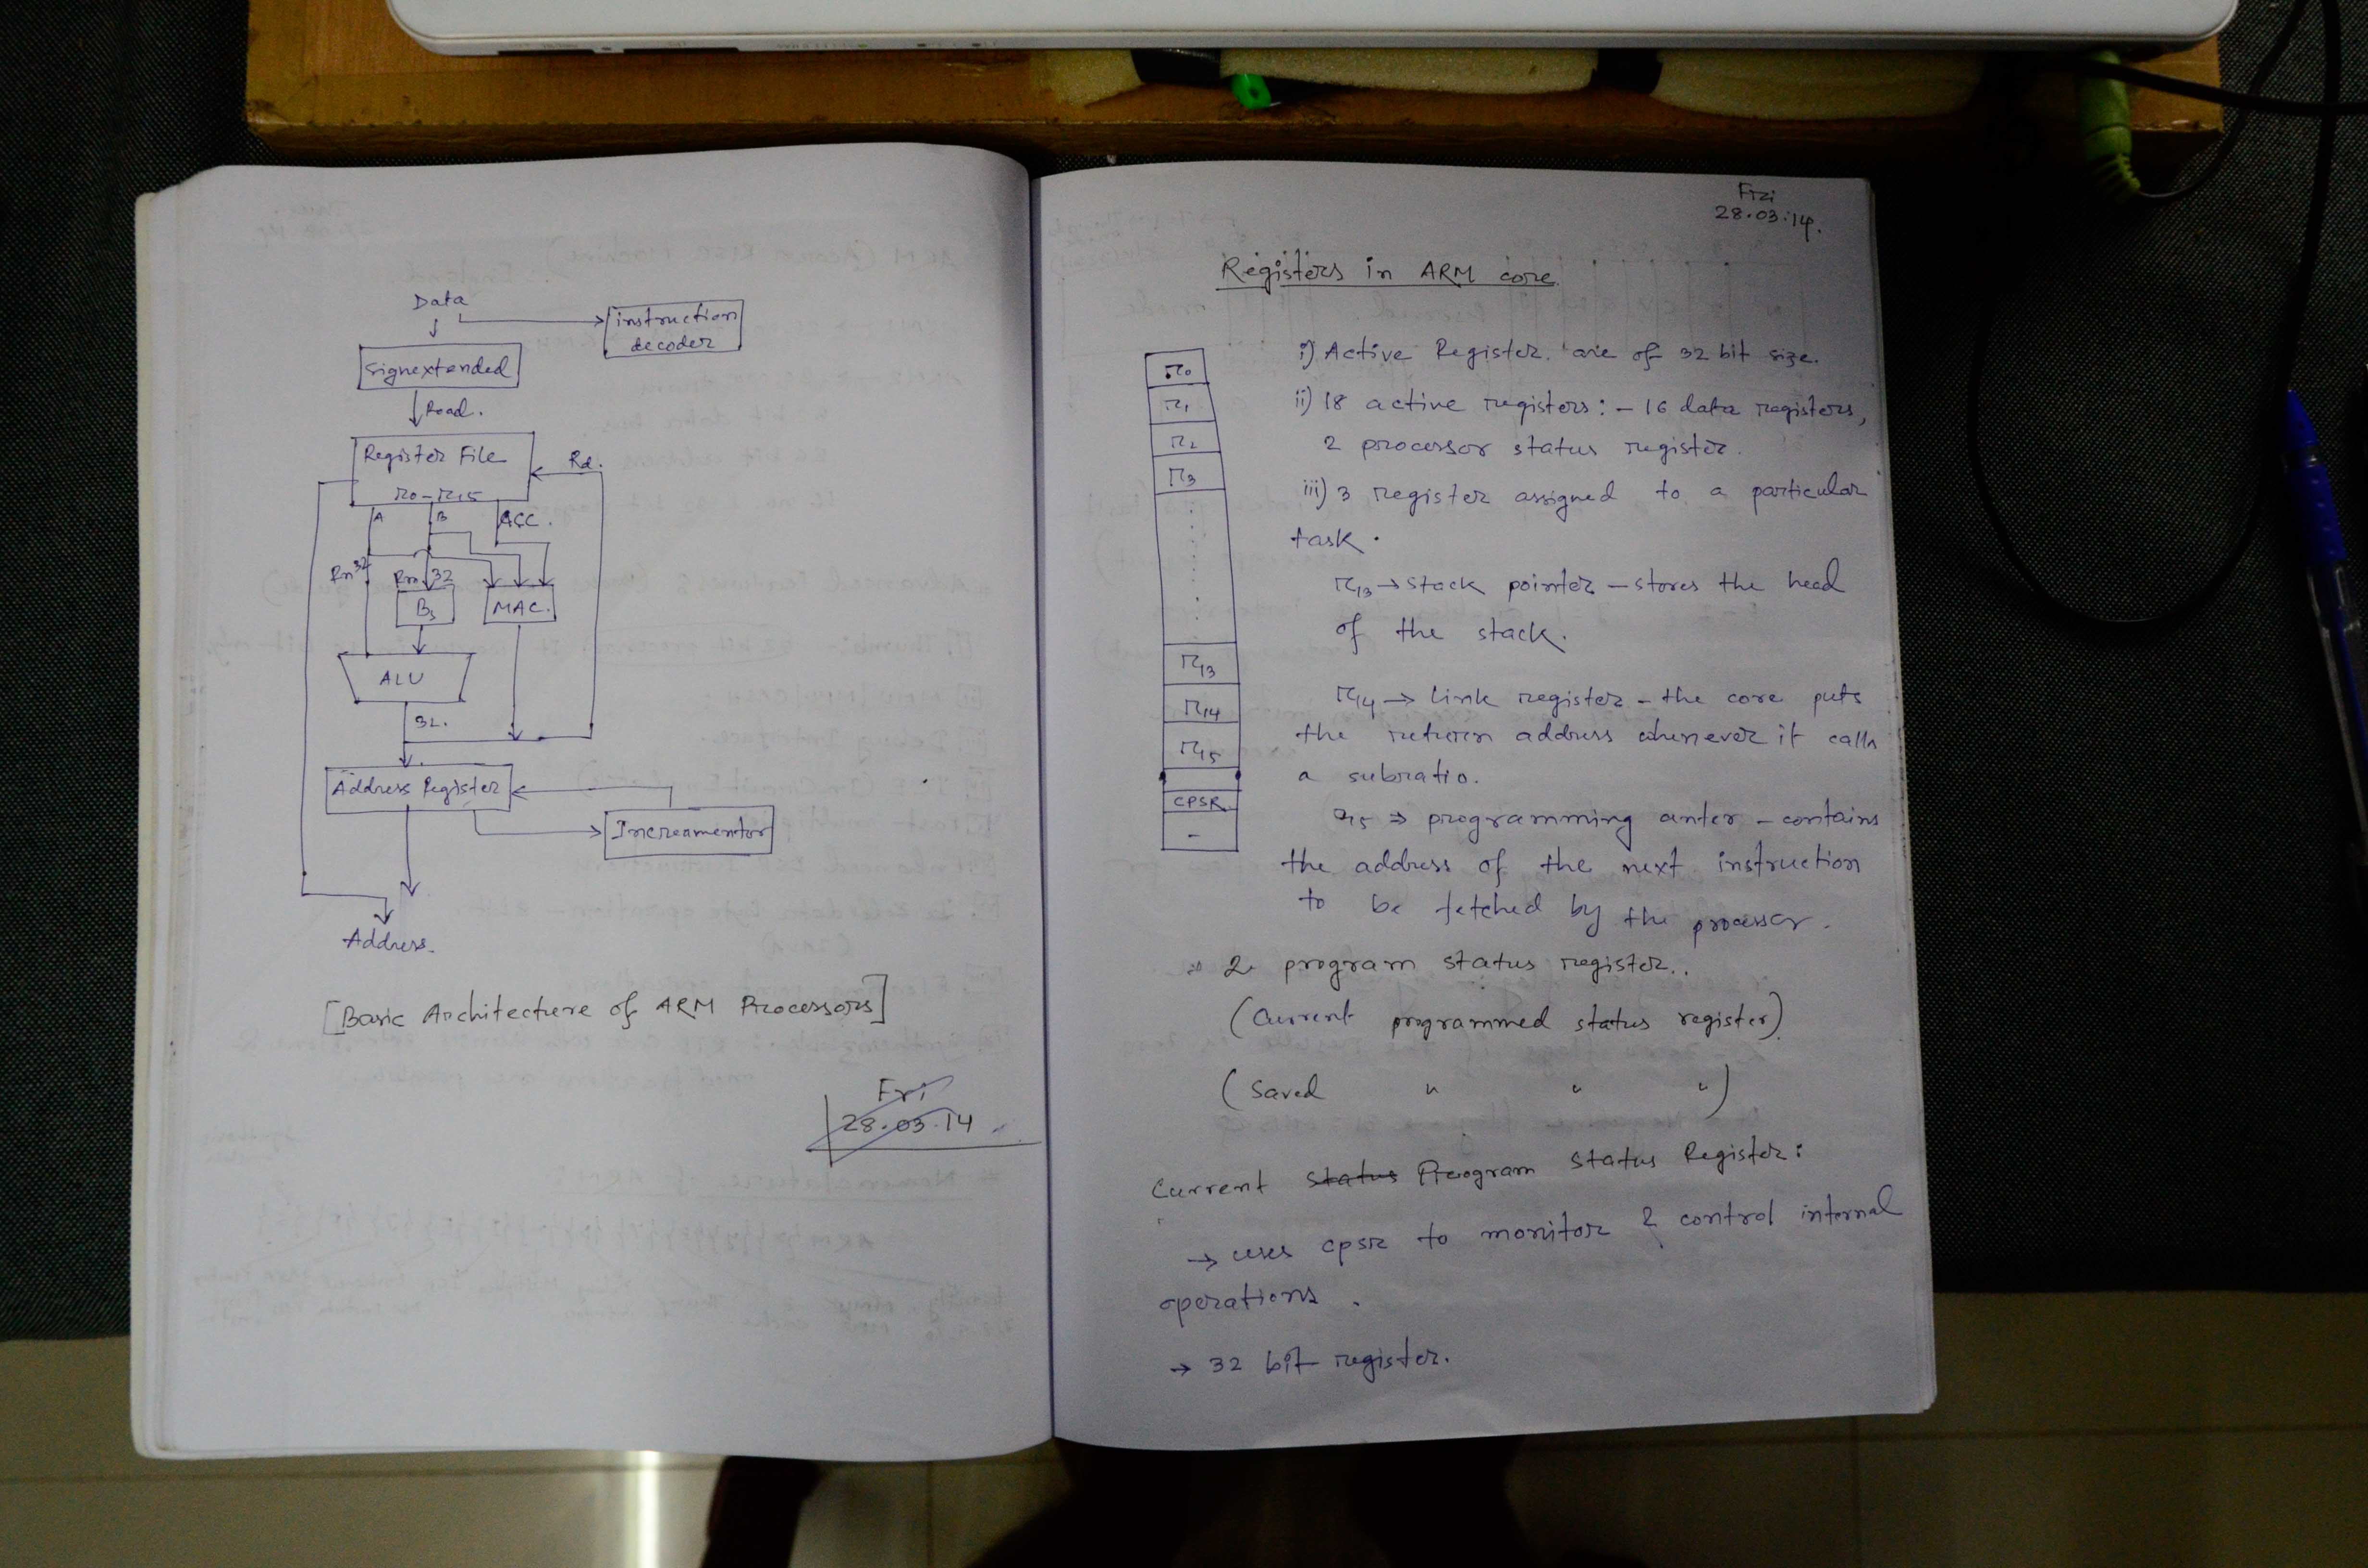 Data
instruction
decoder
Signextended
Read.
Register File
r0-r15
Rd.
A
B
ACC.
Rn 32
Rm 32
Bs
MAC.
ALU
32.
Address Register
Increamentor
Address.
[Basic Architecture of ARM Processors]
Fri
28.03.14
Fri
28.03.14.
Registers in ARM core
r0
r1
r2
r3
r13
r14
r15
CPSR
-
i) Active Register are of 32 bit size.
ii) 18 active registers: - 16 data registers,
2 processor status register.
iii) 3 register assigned to a particular
task.
r13 → stack pointer - stores the head
of the stack.
r14 → link register - the core puts
the return address whenever it calls
a subratio.
r15 ⇒ programming anter - contains
the address of the next instruction
to be fetched by the processor.
2 program status register..
(Current programmed status register)
(saved " " ")
Current status Program Status Register:
→ uses cpsr to monitor & control internal
operations.
→ 32 bit register.